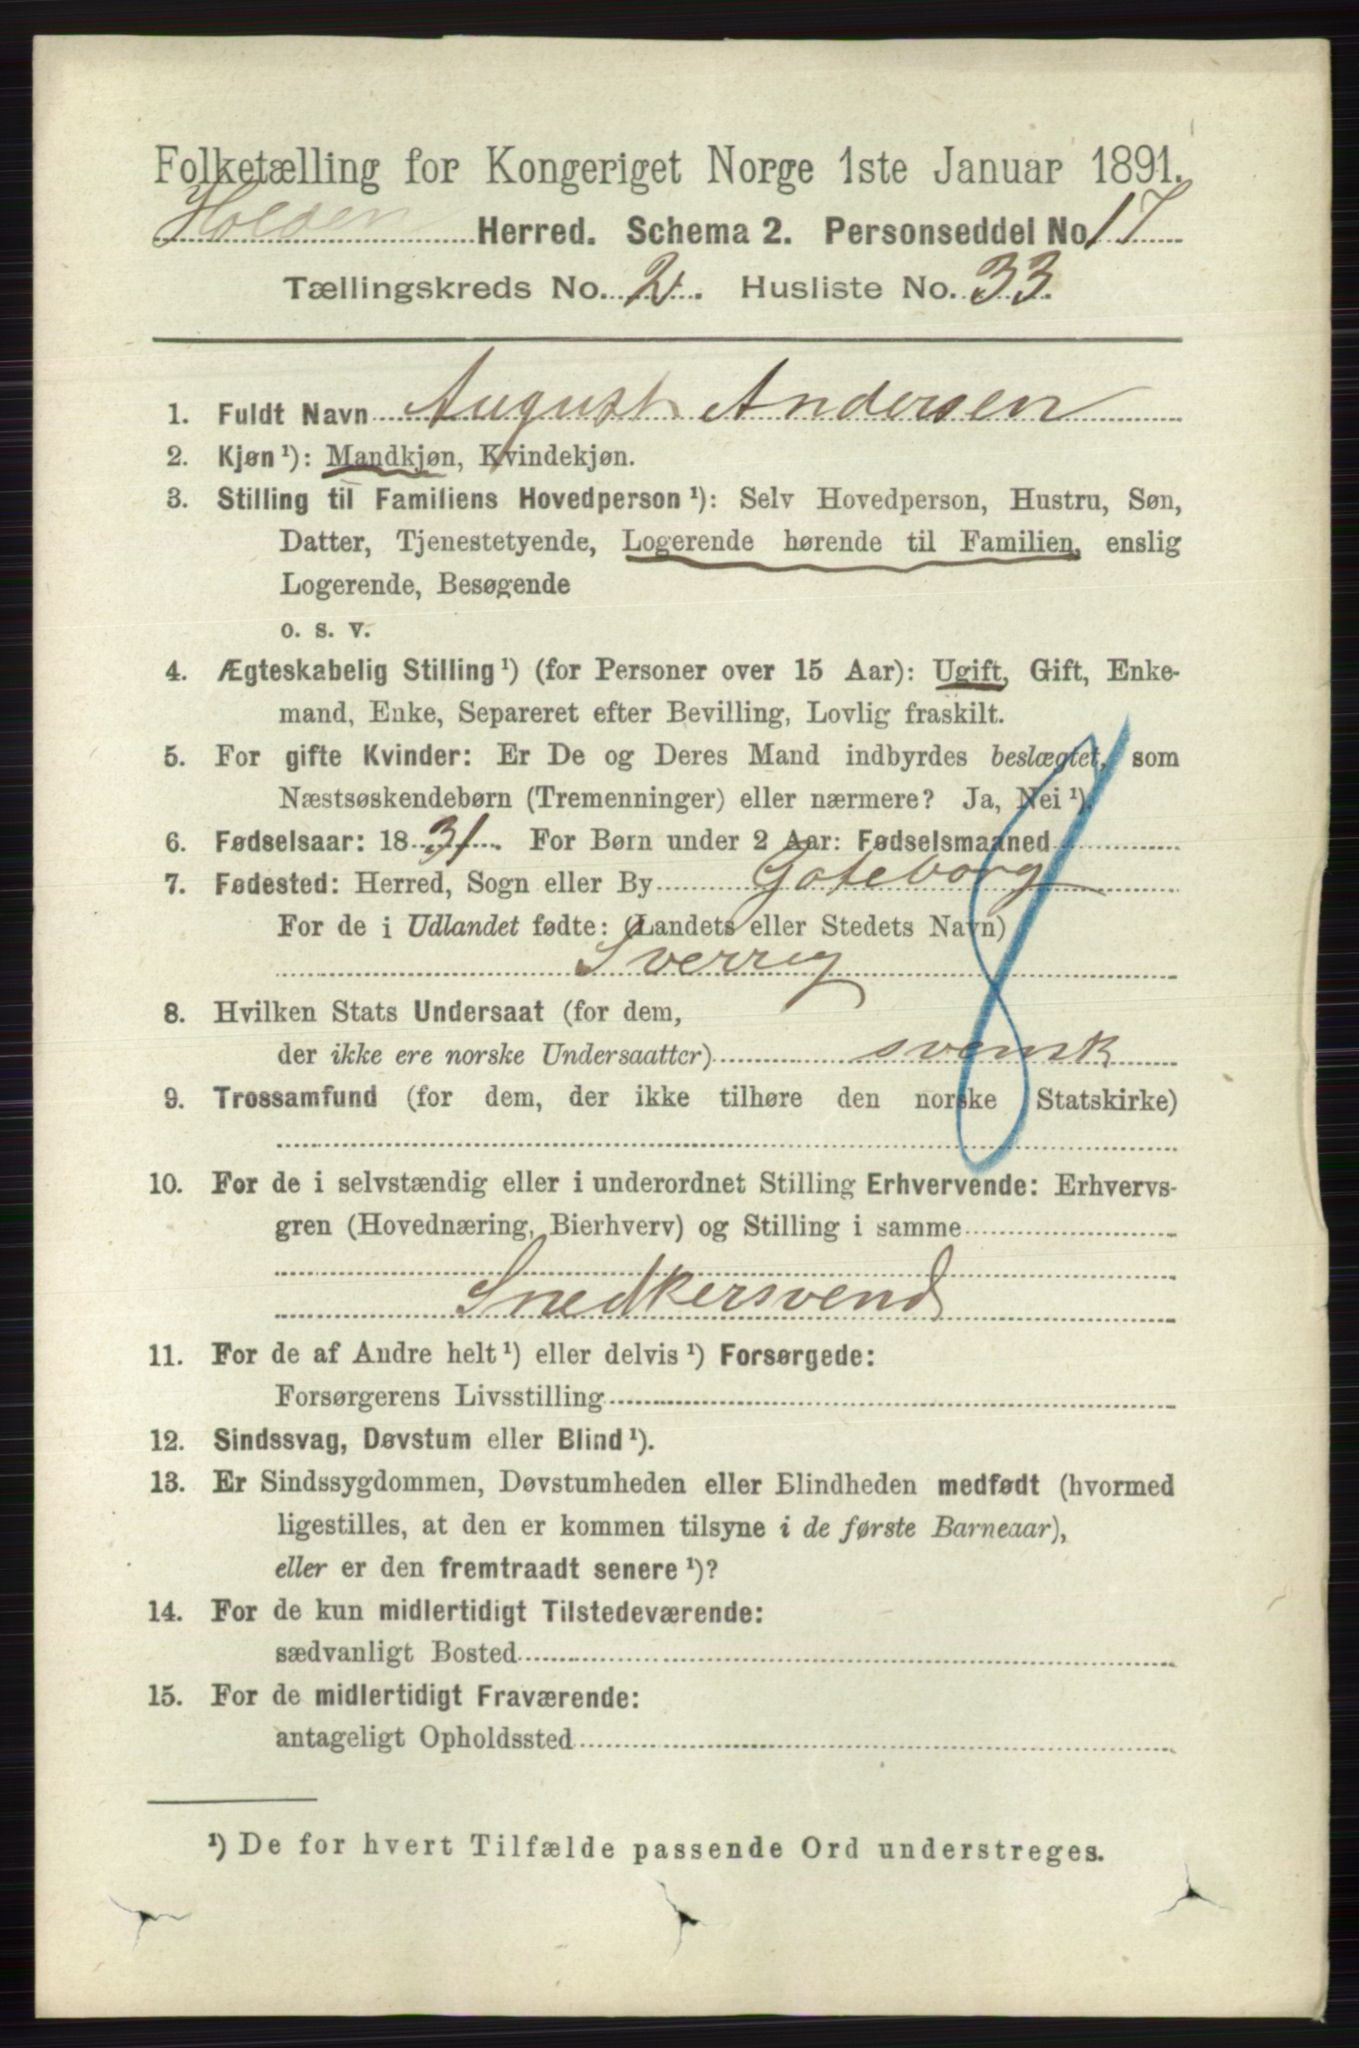 Folketælling for Kongeriget Norge 1ste Januar 1891.
Holden Herred. Schema 2. Personseddel No 17
Tællingskreds No. 2. Husliste No. 33.
1. Fuldt Navn August Andersen
2. Kjøn ¹): Mandkjøn, Kvindekjøn.
3. Stilling til Familiens Hovedperson ¹): Selv Hovedperson, Hustru, Søn,
Datter, Tjenestetyende, Logerende hørende til Familien, enslig
Logerende, Besøgende
o. s. v.
4. Ægteskabelig Stilling ¹) (for Personer over 15 Aar): Ugift, Gift, Enke-
mand, Enke, Separeret efter Bevilling, Lovlig fraskilt.
5. For gifte Kvinder: Er De og Deres Mand indbyrdes beslægtet, som
Næstsøskendebørn (Tremenninger) eller nærmere? Ja, Nei ¹).
6. Fødselsaar: 1831. For Børn under 2 Aar: Fødselsmaaned
7. Fødested: Herred, Sogn eller By Goteborg
For de i Udlandet fødte: (Landets eller Stedets Navn)
Sverrig
8. Hvilken Stats Undersaat (for dem,
der ikke ere norske Undersaatter) svensk
9. Trossamfund (for dem, der ikke tilhøre den norske Statskirke)
10. For de i selvstændig eller i underordnet Stilling Erhvervende: Erhvervs-
gren (Hovednæring, Bierhverv) og Stilling i samme
Snedkersvend
11. For de af Andre helt ¹) eller delvis ¹) Forsørgede:
Forsørgerens Livsstilling
12. Sindssvag, Døvstum eller Blind ¹).
13. Er Sindssygdommen, Døvstumheden eller Blindheden medfødt (hvormed
ligestilles, at den er kommen tilsyne i de første Barneaar),
eller er den fremtraadt senere ¹)?
14. For de kun midlertidigt Tilstedeværende:
sædvanligt Bosted
15. For de midlertidigt Fraværende:
antageligt Opholdssted
¹) De for hvert Tilfælde passende Ord understreges.